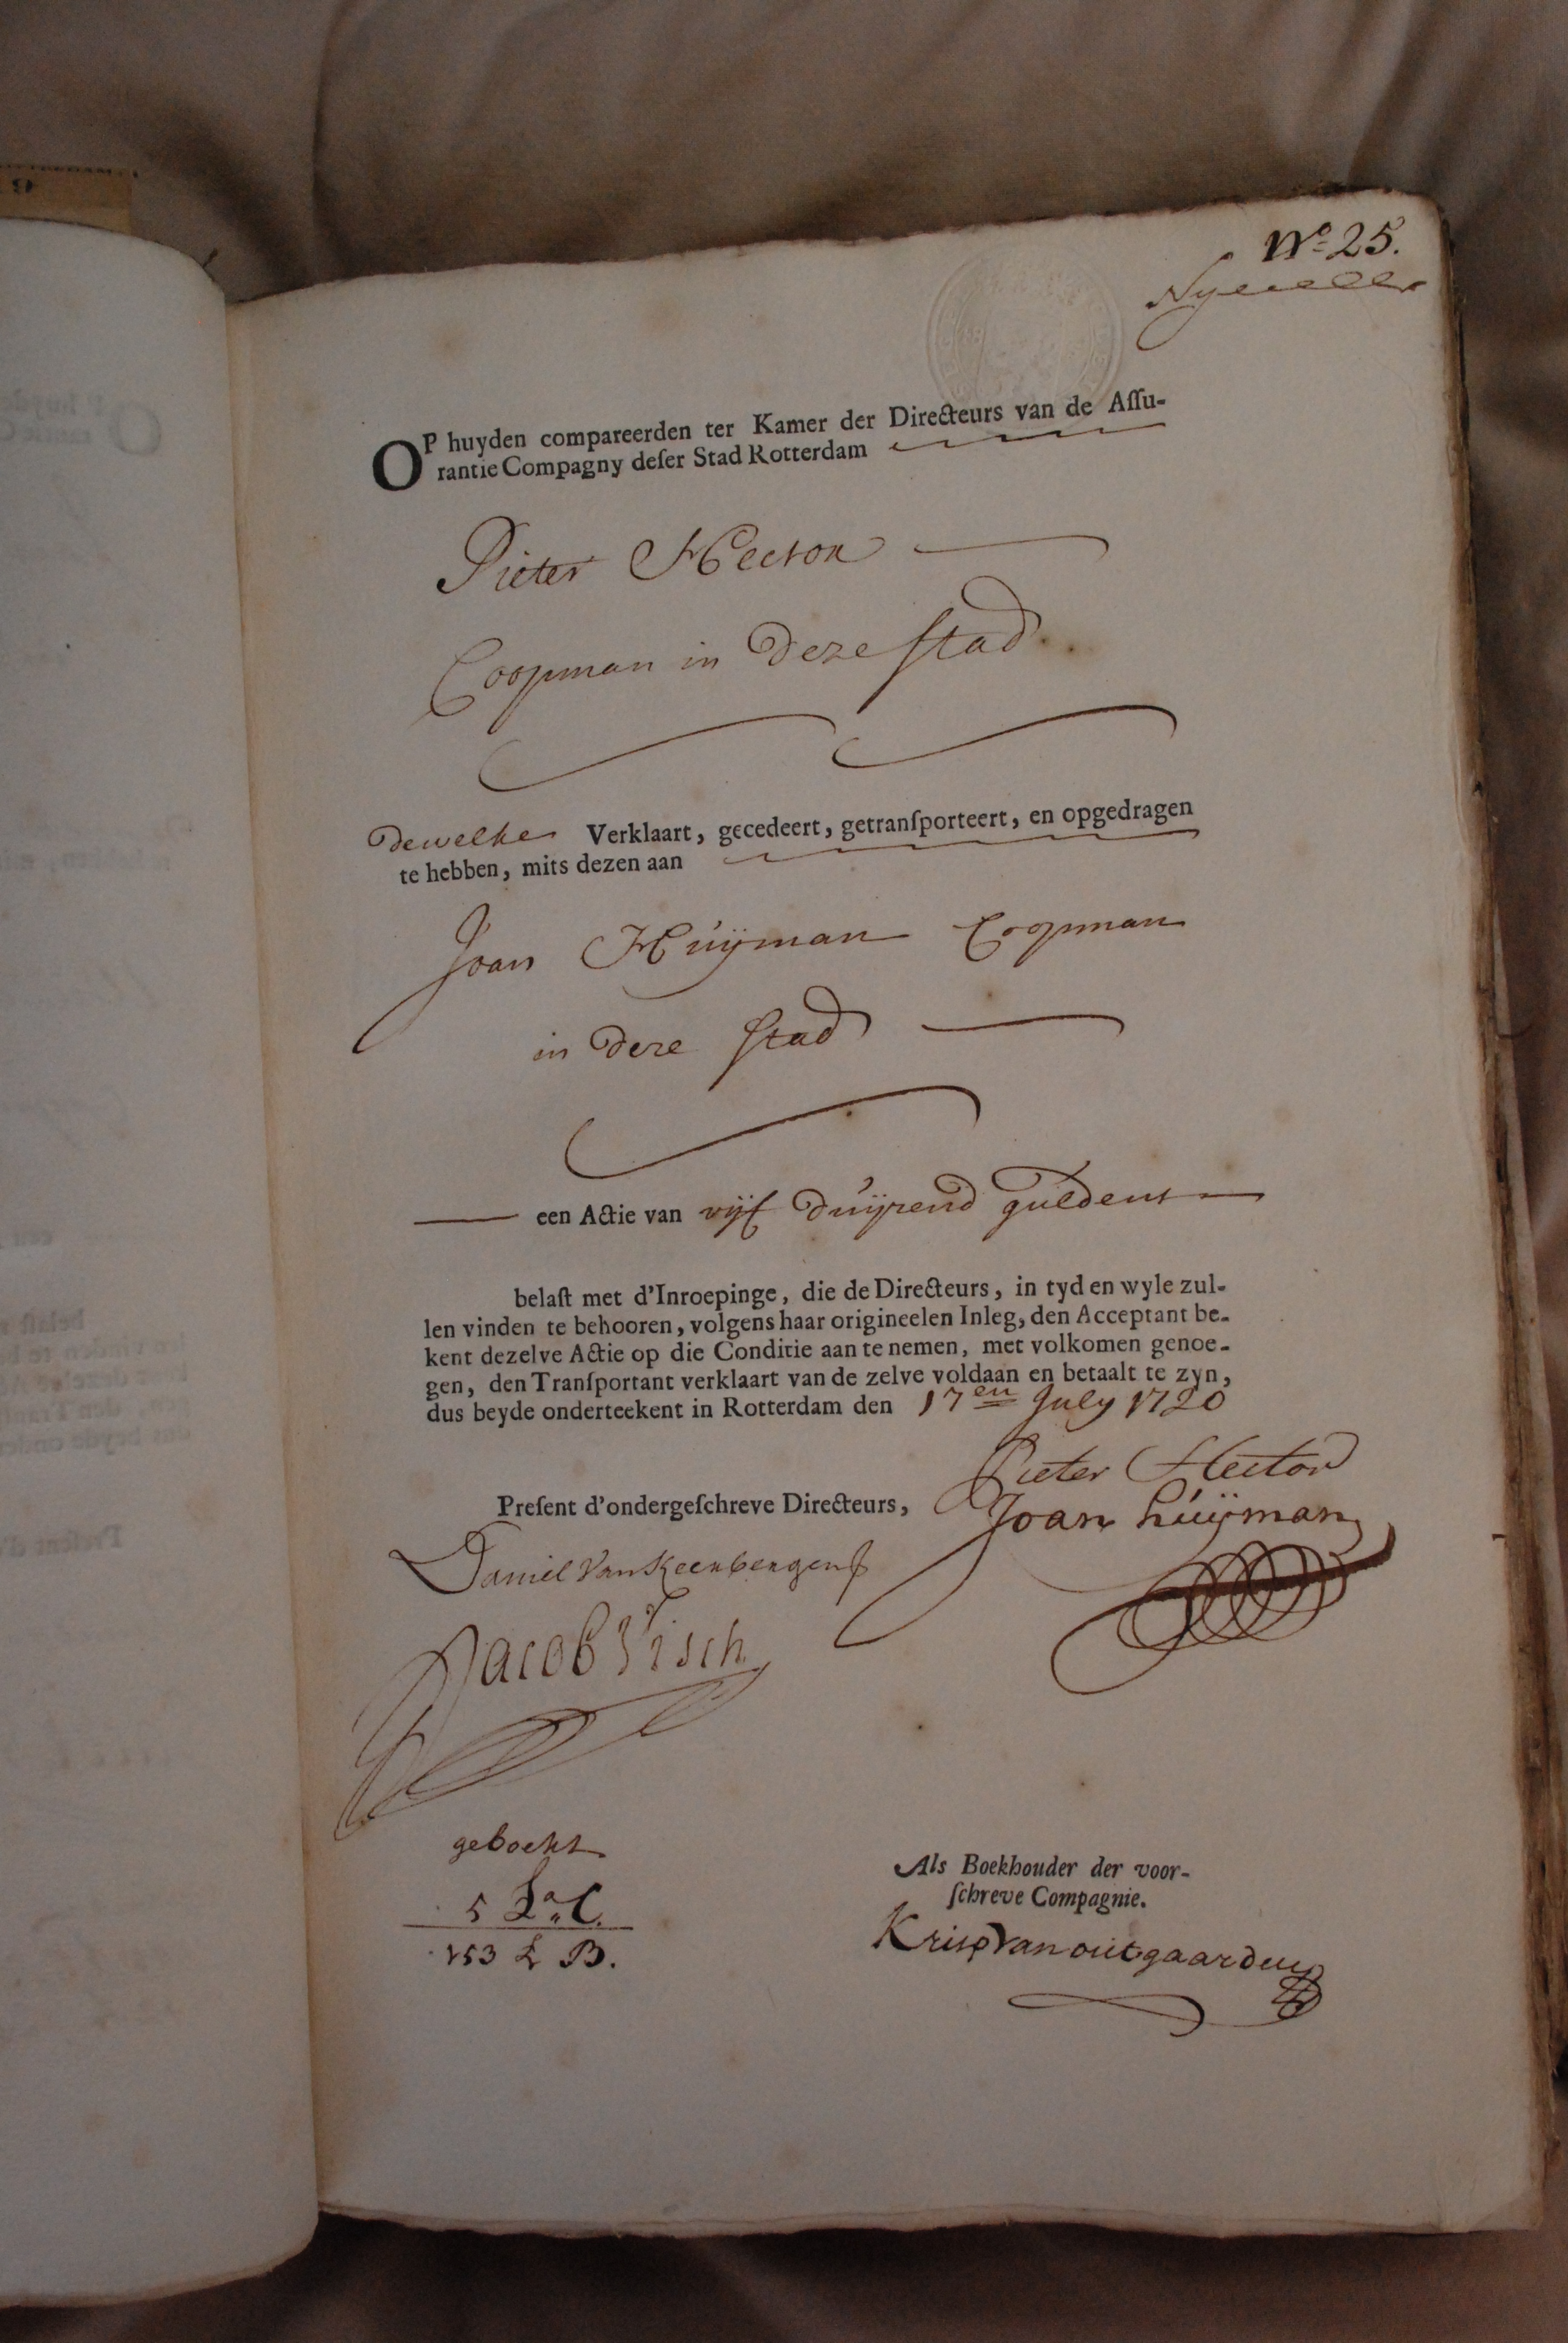 No. 25.
OP huyden compareerden ter Kamer der Directeurs van de Aſſu-
rantie Compagny deſer Stad Rotterdam
Pieter Hector
Coopman in deze stad
dewelke Verklaart, gecedeert, getranſporteert, en opgedragen
te hebben, mits dezen aan
Joan Huijman Coopman
in deze stad
een Actie van vijf duijzend guldens
belaſt met d'Inroepinge, die de Directeurs, in tyd en wyle zul-
len vinden te behooren, volgens haar origineelen Inleg, den Acceptant be-
kent dezelve Actie op die Conditie aan te nemen, met volkomen genoe-
gen, den Tranſportant verklaart van de zelve voldaan en betaalt te zyn,
dus beyde onderteekent in Rotterdam den 17en July 1720
Pieter Hector
Preſent d'ondergeſchreve Directeurs,
Joan huijman
Daniel Van Keenbergen
Jacob Visch
geboekt
5 La C.
153 L B.
Als Boekhouder der voor-
ſchreve Compagnie.
Krisp Van outgaarden